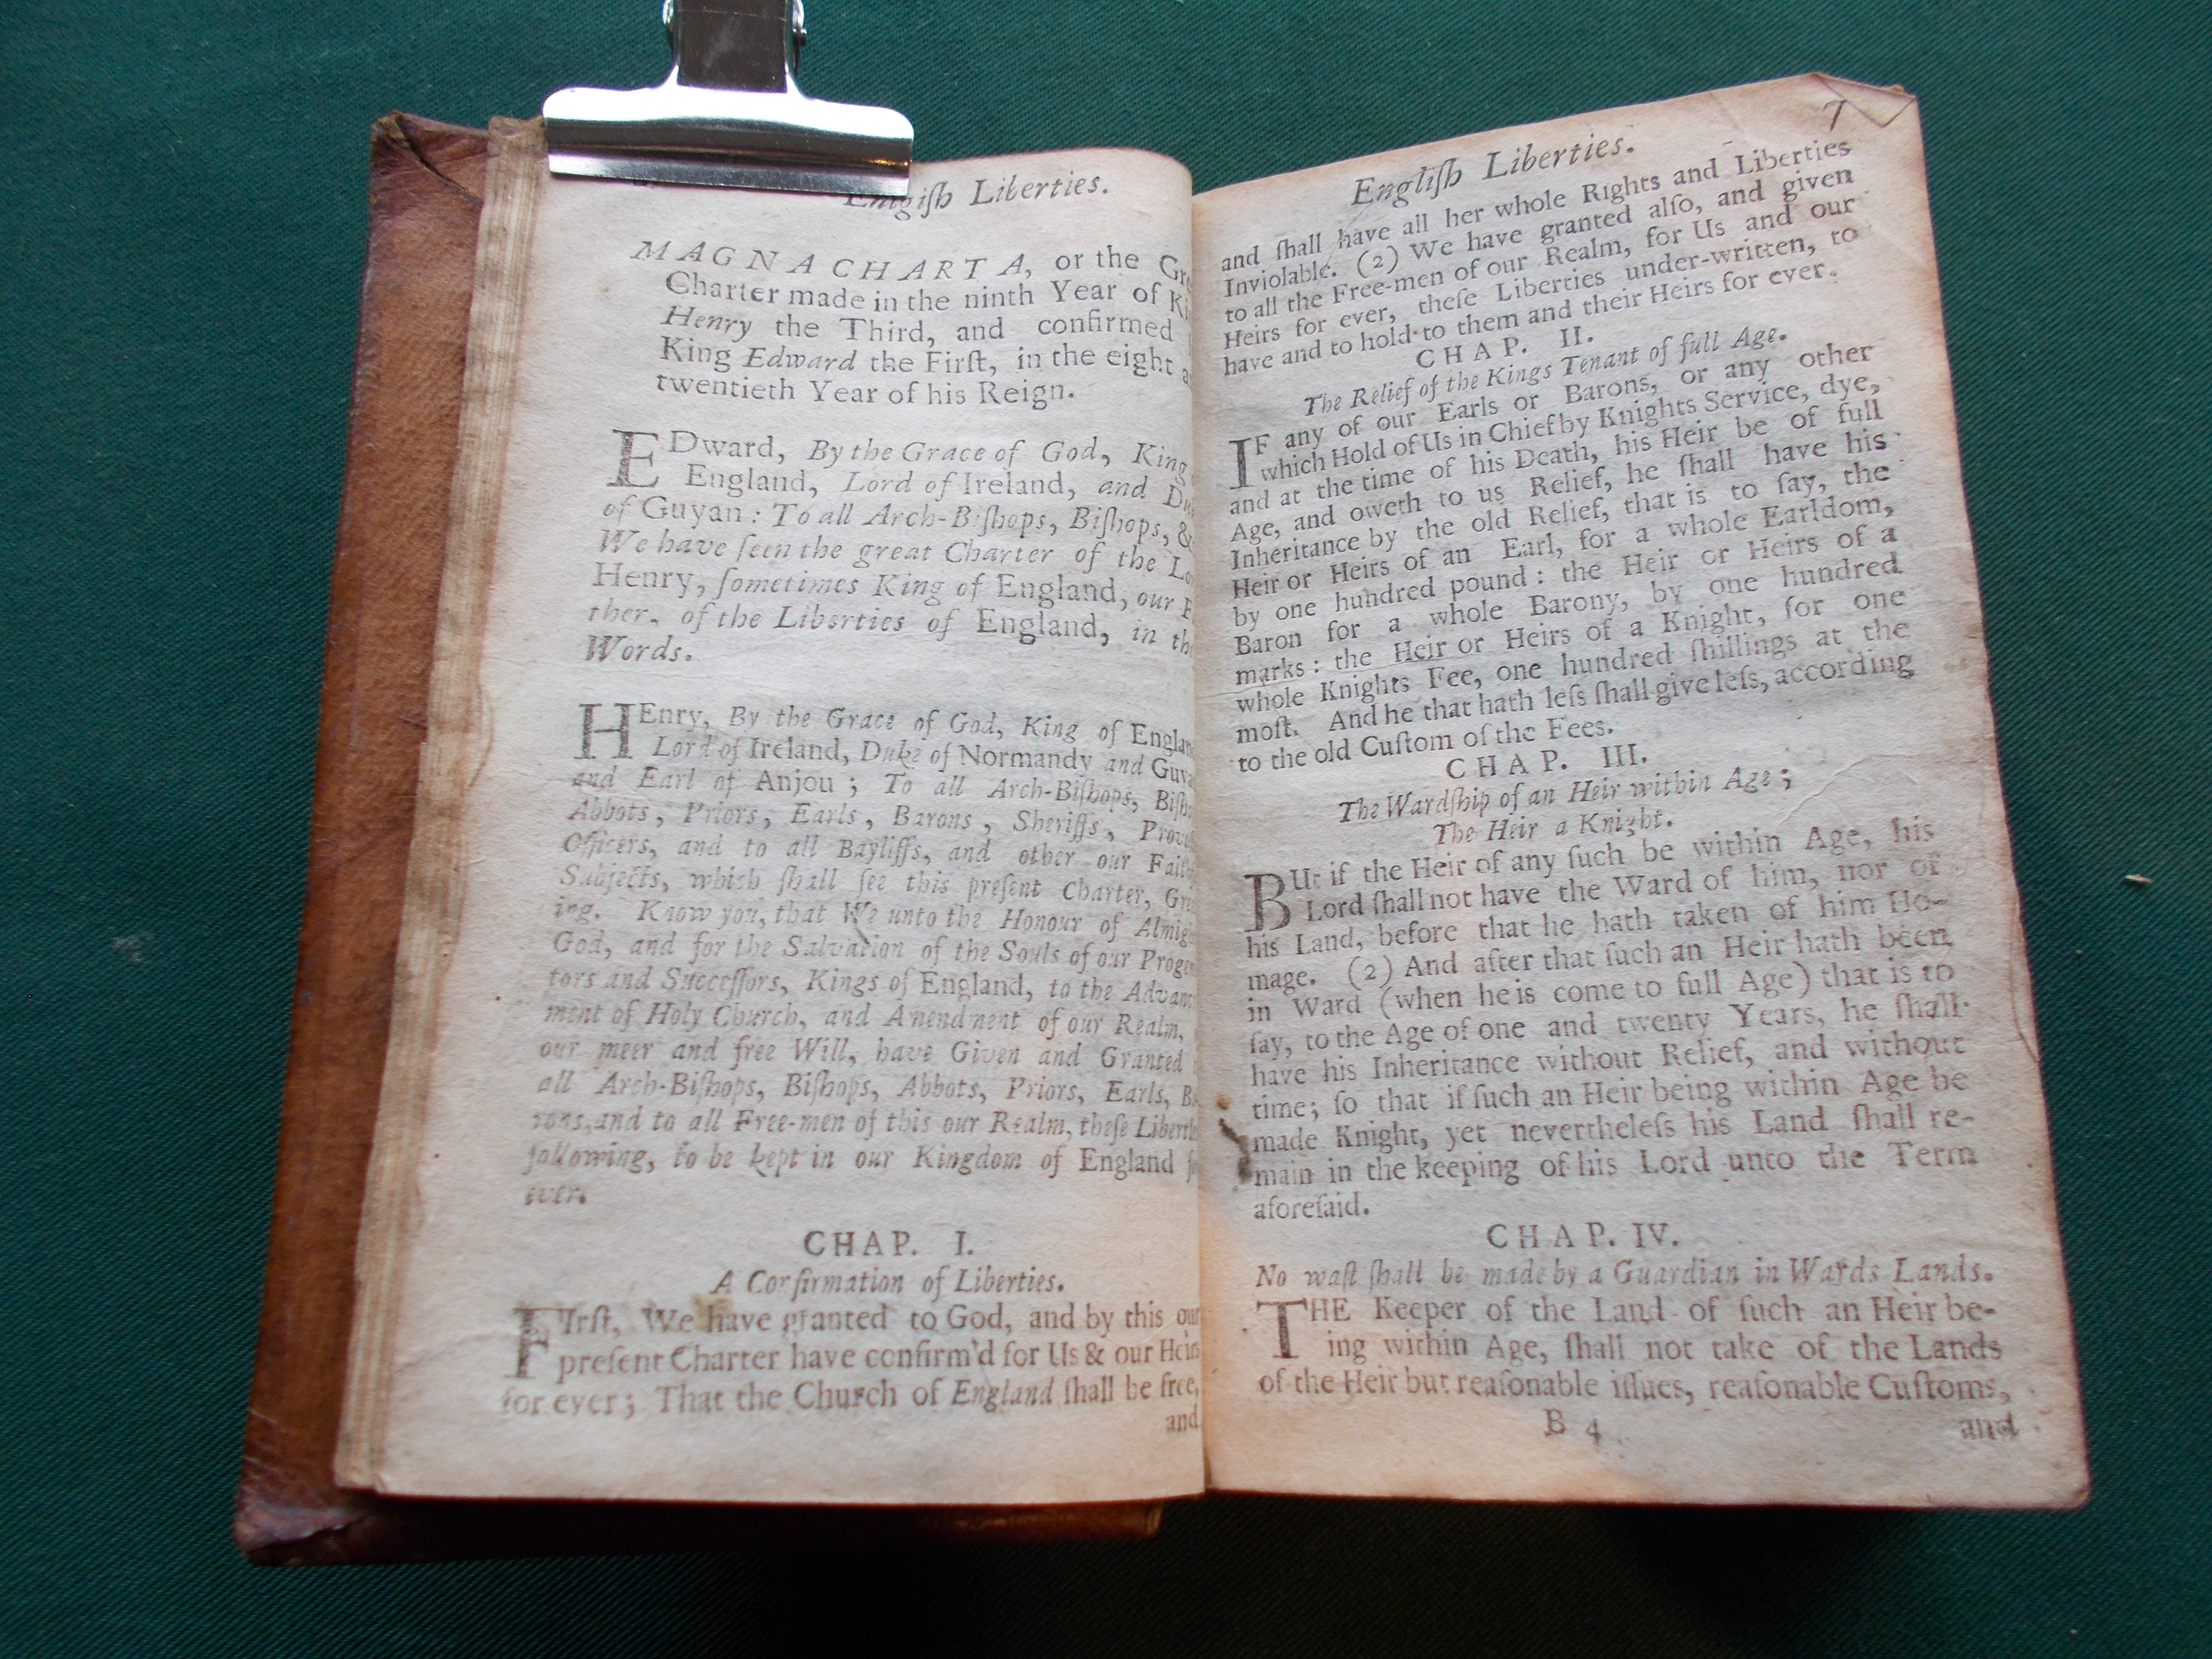 Engliſh Liberties.
MAGNA CHARTA, or the
Charter made in the ninth Year of
Henry the Third, and confirmed
King Edward the Firſt, in the eight
twentieth Year of his Reign.
EDward, By the Grace of God, King
England, Lord of Ireland, and
of Guyan: To all Arch-Biſhops, Biſhops,
We have ſeen the great Charter of the
Henry, ſometimes King of England, our
ther, of the Liberties of England, in
Words.
HEnry, By the Grace of God, King of
Lord of Ireland, Duke of Normandy and
and Earl of Anjou; To all Arch-Biſhops,
Abbots, Priors, Earls, Barons, Sheriffs,
Officers, and to all Bayliffs, and other our
Subjects, which ſhall ſee this preſent Charter,
ing. Know you, that We unto the Honour of
God, and for the Salvation of the Souls of our
tors and Succeſſors, Kings of England, to the
ment of Holy Church, and Amendment of our Realm,
our meer and free Will, have Given and Granted
all Arch-Biſhops, Biſhops, Abbots, Priors, Earls,
rons, and to all Free-men of this our Realm, theſe
following, to be kept in our Kingdom of England
ever.
CHAP. I.
A Confirmation of Liberties.
FIrſt, We have granted to God, and by this our
preſent Charter have confirm'd for Us & our Heirs
for ever; That the Church of England ſhall be free,
and
7
Engliſh Liberties.
and ſhall have all her whole Rights and Liberties
Inviolable. (2) We have granted alſo, and given
to all the Free-men of our Realm, for Us and our
Heirs for ever, theſe Liberties under-written, to
have and to hold to them and their Heirs for ever.
CHAP. II.
The Relief of the Kings Tenant of full Age.
IF any of our Earls or Barons, or any other
which Hold of Us in Chief by Knights Service, dye,
and at the time of his Death, his Heir be of full
Age, and oweth to us Relief, he ſhall have his
Inheritance by the old Relief, that is to ſay, the
Heir or Heirs of an Earl, for a whole Earldom,
by one hundred pound: the Heir or Heirs of a
Baron for a whole Barony, by one hundred
marks: the Heir or Heirs of a Knight, for one
whole Knights Fee, one hundred ſhillings at the
moſt. And he that hath leſs ſhall give leſs, according
to the old Cuſtom of the Fees.
CHAP. III.
The Wardſhip of an Heir within Age;
The Heir a Knight.
BUt if the Heir of any ſuch be within Age, his
Lord ſhall not have the Ward of him, nor of
his Land, before that he hath taken of him Ho-
mage. (2) And after that ſuch an Heir hath been
in Ward (when he is come to full Age) that is to
ſay, to the Age of one and twenty Years, he ſhall
have his Inheritance without Relief, and without
time; ſo that if ſuch an Heir being within Age be
made Knight, yet nevertheleſs his Land ſhall re-
main in the keeping of his Lord unto the Term
aforeſaid.
CHAP. IV.
No waſt ſhall be made by a Guardian in Wards Lands.
THE Keeper of the Land of ſuch an Heir be-
ing within Age, ſhall not take of the Lands
of the Heir but reaſonable iſſues, reaſonable Cuſtoms,
B 4
and